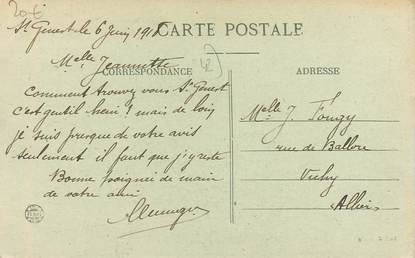 20€
St Genest le 6 Juin 191
CARTE POSTALE
Melle Jeannette
CORRESPONDANCE
42
ADRESSE
Comment trouvez vous St Genest
c'est gentil hein! mais de loin
je suis presque de votre avis
seulement il faut que j'y reste
Bonne poignée de main
de votre ami
Melle J. Fougy
rue de Ballore
Vichy
Allier